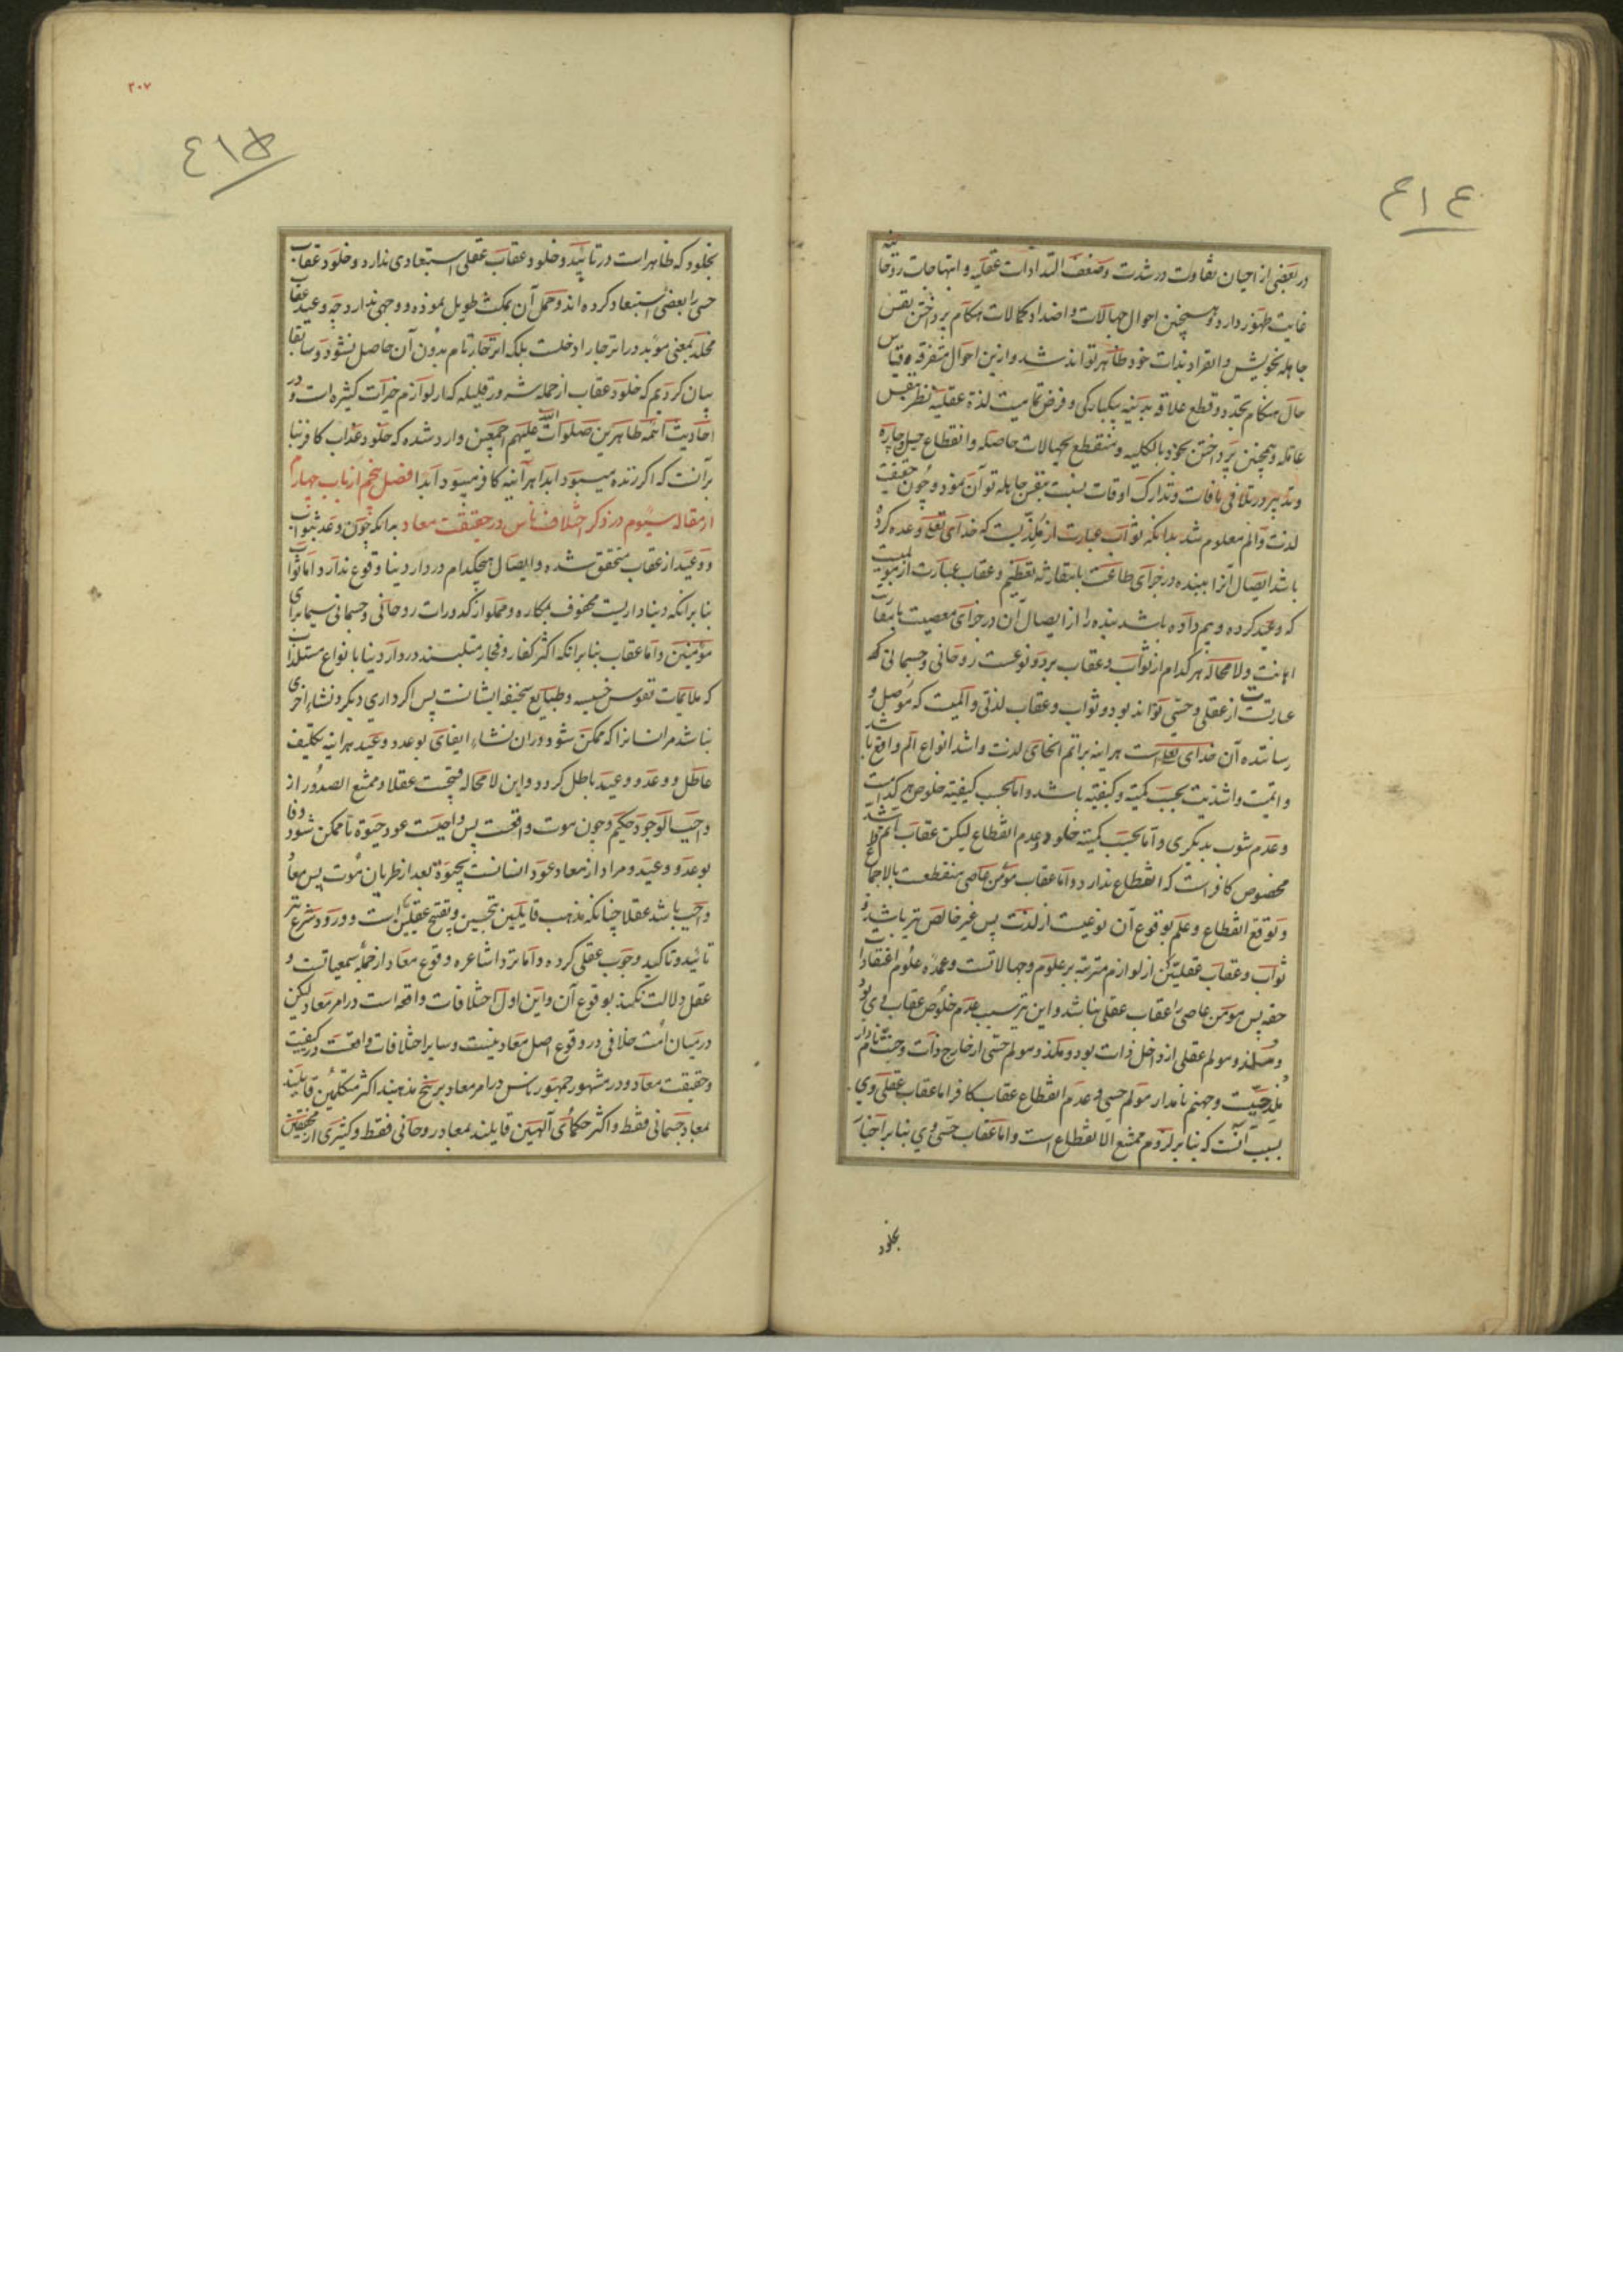 ٤١٤
در بعضی از احیان تفاوت در شدت و ضعف التذاذات عقلیه و ابتهاجات روحانیه
غایت ظهور دارد و همچنین احوال جهالات و اضداد کمالات هنگام پرداختن نفس
جاهله بخویش و انفراد بذات خود ظاهر تواند شد و ازین احوال متفرقه قیاس
حال هنگام تجرد و قطع علاقه بدنیه بیکبارگی و فرض تمامیت لذة عقلیه نظر بنفس
عاقله و همچنین پرداختن بخود بالکلیه و منقطع بجهالات حاصله و انقطاع حیل و چاره
و تدبیر در تلافی مافات و تدارک اوقات نسبت بنفس جاهله توان نمود و چون حقیقت
لذت و الم معلوم شد بدانکه ثواب عبارت از ملذیست که خدای تعالی وعده کرده
باشد ایصال آنرا ببنده در جزای طاعت بامقارنه تعظیم و عقاب عبارت از مولمیست
که وعید کرده و بیم داده باشد بنده را از ایصال آن در جزای معصیت بامقارنت
اهانت و لامحاله هر کدام از ثواب و عقاب بر دو نوعست روحانی و جسمانی که
عبارتست از عقلی و حسی تواند بود و ثواب و عقاب لذتی و المیست که موصل و
رساننده آن خدای تعالی است هراینه بر اتم انحای لذت و اشد انواع الم واقع باشد
و اتمیت و اشدیت بحسب کمیة و کیفیة باشد و اما بحسب کیفیة خلوص هر کدامست
و عدم شوب بدیکری و اما بحسب کمیة خلود و عدم انقطاع لیکن عقاب
مخصوص کافر است که انقطاع ندارد و اما عقاب مؤمن عاصی منقطعست بالاجماع
و توقع انقطاع و علم بوقوع آن نوعیست از لذت پس غیر خالص نیز باشد و
ثواب و عقاب عقلیین از لوازم مترتبه بر علوم و جهالاتست و عمده علوم اعتقادات
حقه پس مومن عاصی را عقاب عقلی نباشد و این نیز سبب عدم خلوص عقاب وی بود
و ملذ و مولم عقلی از داخل ذات بود و ملذ و مولم حسی از خارج ذات و جنت نام دار
ملذ حسیست و جهنم نام دار مولم حسی و عدم انقطاع عقاب کافر اما عقاب عقلی وی
بسبب آنست که بنابر لزوم ممتنع الانقطاع است و اما عقاب حسی وی بنابر اخبار
بخلود
٢٠٧
٤١٥
بخلود که ظاهر است در تأیید و خلود عقاب عقلی استبعادی ندارد و خلود عقاب
حسی را بعضی استبعاد کرده‌اند و حمل آن بمکث طویل نموده و وجهی ندارد چه وعید عقاب
مخلد بمعنی موبد در انزجار ادخلست بلکه انزجار تام بدون آن حاصل نشود و سابقا
بیان کردیم که خلود عقاب از جمله شرور قلیله که از لوازم خیرات کثیره است و در
احادیث ائمه طاهرین صلوات الله علیهم اجمعین وارد شده که خلود عذاب کافر بنا
بر آنست که اگر زنده میبود ابدا هرآینه کافر میبود ابدا فصل پنجم از باب چهارم
از مقاله سیوم در ذکر اختلاف ناس در حقیقت معاد بدانکه چون وعد بثواب
و وعید از عقاب متحقق شده و ایصال هیچکدام در دار دنیا وقوع ندارد اما ثواب
بنابرانکه دنیا داریست محفوف بمکاره و مملو از کدورات روحانی و جسمانی سیما برای
مؤمنین و اما عقاب بنابرانکه اکثر کفار و فجار متلبسند در دار دنیا بانواع مستلذات
که ملایمات نفوس خسیسه و طبایع سخیفه ایشانست پس اگر داری دیگر و نشاء اخری
نباشد مر انسانرا که ممکن شود دران نشاء ایفای بوعد و وعید هراینه تکلیف
عاطل و وعد و وعید باطل گردد و این لامحاله قبیحست عقلا و ممتنع الصدور از
واجب الوجود حکیم و چون موت واقعست پس واجبست عود حیوة تا ممکن شود وفا
بوعد و وعید و مراد از معاد عود انسانست بحیوة بعد از طریان موت پس معاد
واجب باشد عقلا چنانکه مذهب قایلین بتحسین و تقبیح عقلیین است و ورود شرع نیز
تائید و تاکید وجوب عقلی کرده و اما نزد اشاعره وقوع معاد از جمله سمعیاتست و
عقل دلالت نکند بوقوع آن و این اول اختلافات واقعه است در امر معاد لیکن
در میان امت خلافی در وقوع اصل معاد نیست و سایر اختلافات واقعست در کیفیت
و حقیقت معاد و در مشهور جمهور ناس در امر معاد بر پنج مذهبند اکثر متکلمین قایلند
بمعاد جسمانی فقط و اکثر حکمای آلهیین قایلند بمعاد روحانی فقط و کثیری از محققین